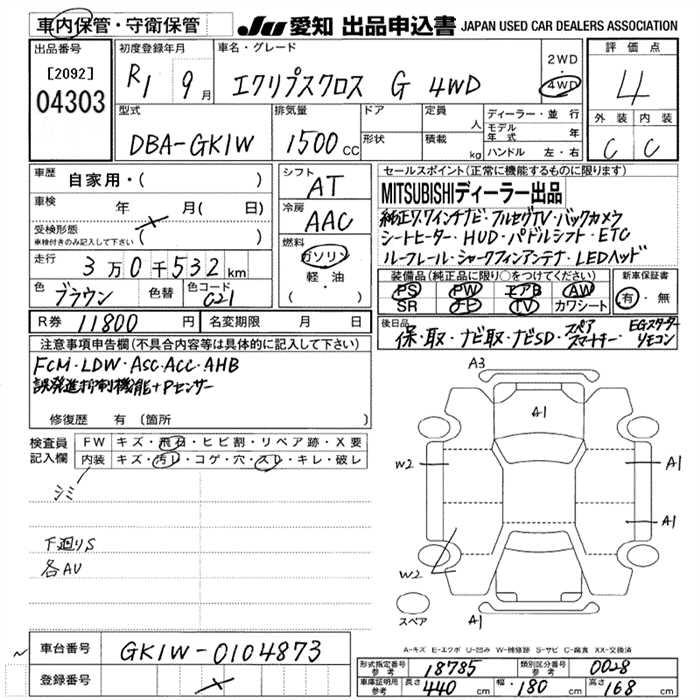 車内保管・守衛保管
JU 愛知 出品申込書 JAPAN USED CAR DEALERS ASSOCIATION
出品番号 初度登録年月 車名・グレード 評価点
[2092] R1 9月 エクリプスクロス G 4WD 2WD・4WD 4
04303
型式 排気量 ドア 定員 人 ディーラー・並行 外装 内装
DBA-GK1W 1500CC 形状 積載 kg モデル年式 年 C C
ハンドル 左・右
車歴 自家用・( ) シフト AT セールスポイント(正常に機能するものに限ります)
車検 年 月( 日) 冷房 AAC MITSUBISHIディーラー出品
受検形態 車検付きのみ記入して下さい ( ) 純正7インチナビ・フルセグTV・バックカメラ
燃料 ガソリン・軽・油 シートヒーター・HUD・パドルシフト・ETC
走行 3万0千532km ルーフレール・シャークフィンアンテナ・LEDヘッド
色 ブラウン 色替 色コード C21 装備品(純正品に限り○をつけてください) 新車保証書
PS PW エアB AW 有・無
SR ナビ TV カワシート
R券 11800円 名変期限 月 日
後日品 保・取・ナビ取・ナビSD・スペアスマートキー・EGスターターリモコン
注意事項申告欄(不具合含等は具体的に記入して下さい)
FCM・LDW・ASC・ACC・AHB
誤発進抑制機能+Pセンサー
修復歴 有 (箇所 )
検査員記入欄 FW キズ・飛石・ヒビ割・リペア跡・X要
内装 キズ・汚レ・コゲ・穴・スレ・キレ・破レ
シミ
下廻りS
各AU
A3
A1
W2
A1
A1
W2
A1
スペア
A-キズ E-エクボ U-凹み W-補修跡 S-サビ C-腐食 XX-交換済
車台番号 GK1W-0104873
登録番号
形式指定番号 参考 18785 類別区分番号 参考 0028
車庫証明用 参考 長さ 440cm 幅・180cm 高さ 168cm